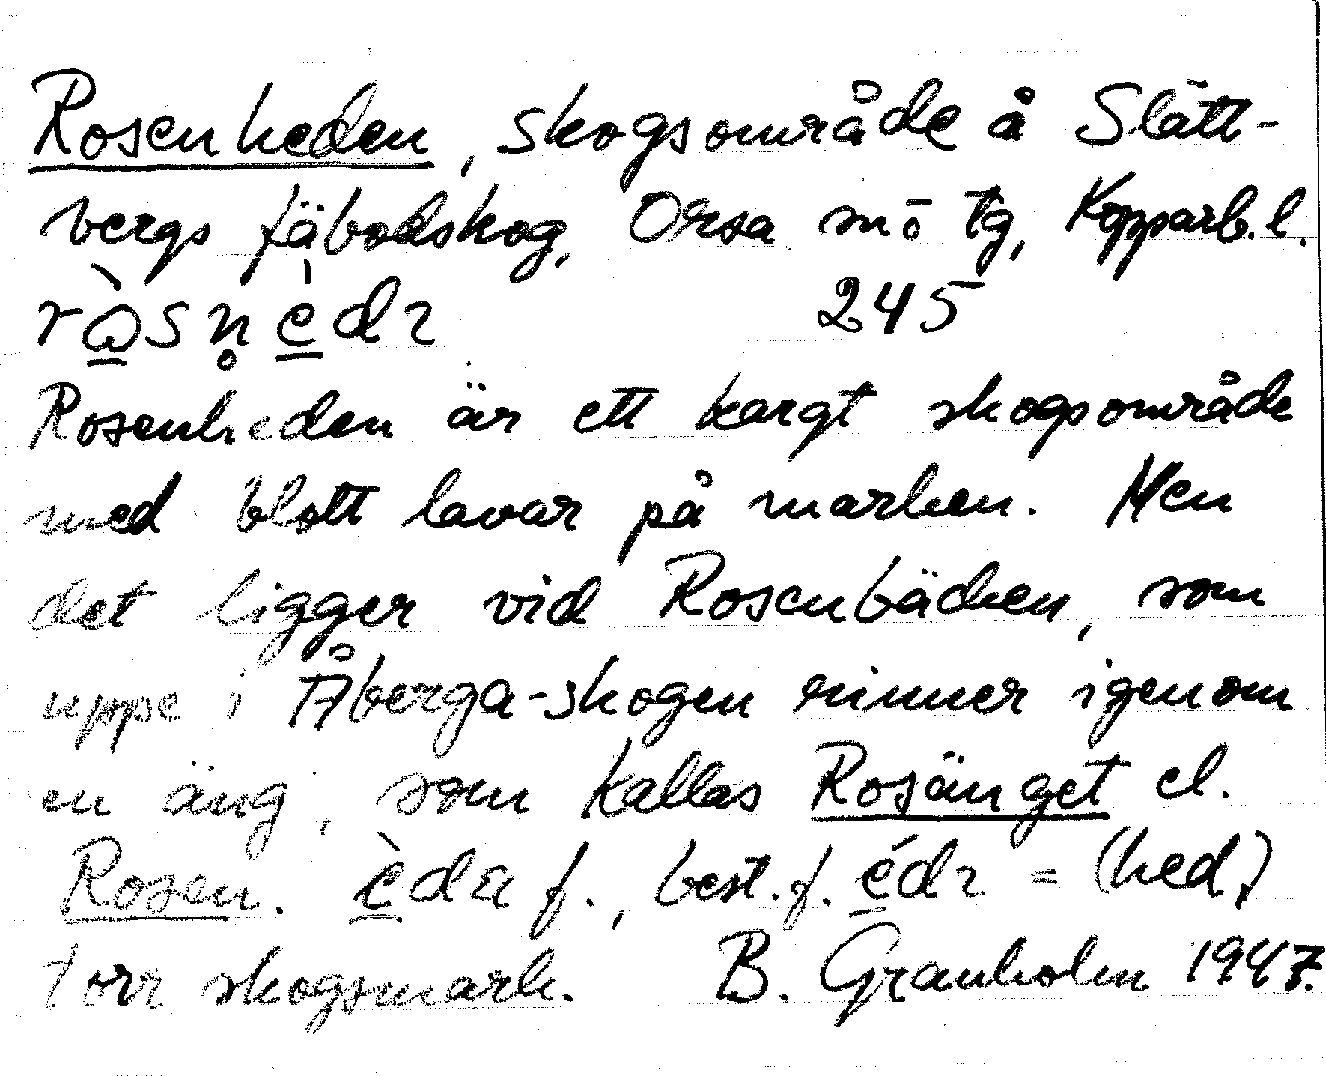 Rosenheden, skogsområde å Slätt-
bergs fäbodskog, Orsa sn ö tg, Kopparb.l.
245
Rosenheden är ett kargt skogsområde
med blott lavar på marken. Men
det ligger vid Rosenbäcken, som
uppe i Åberga-skogen rinner igenom
en äng, som kallas Rosänget el.
Rosen. f., best. f. = (hed,)
torr skogsmark. B. Granholm 1947.